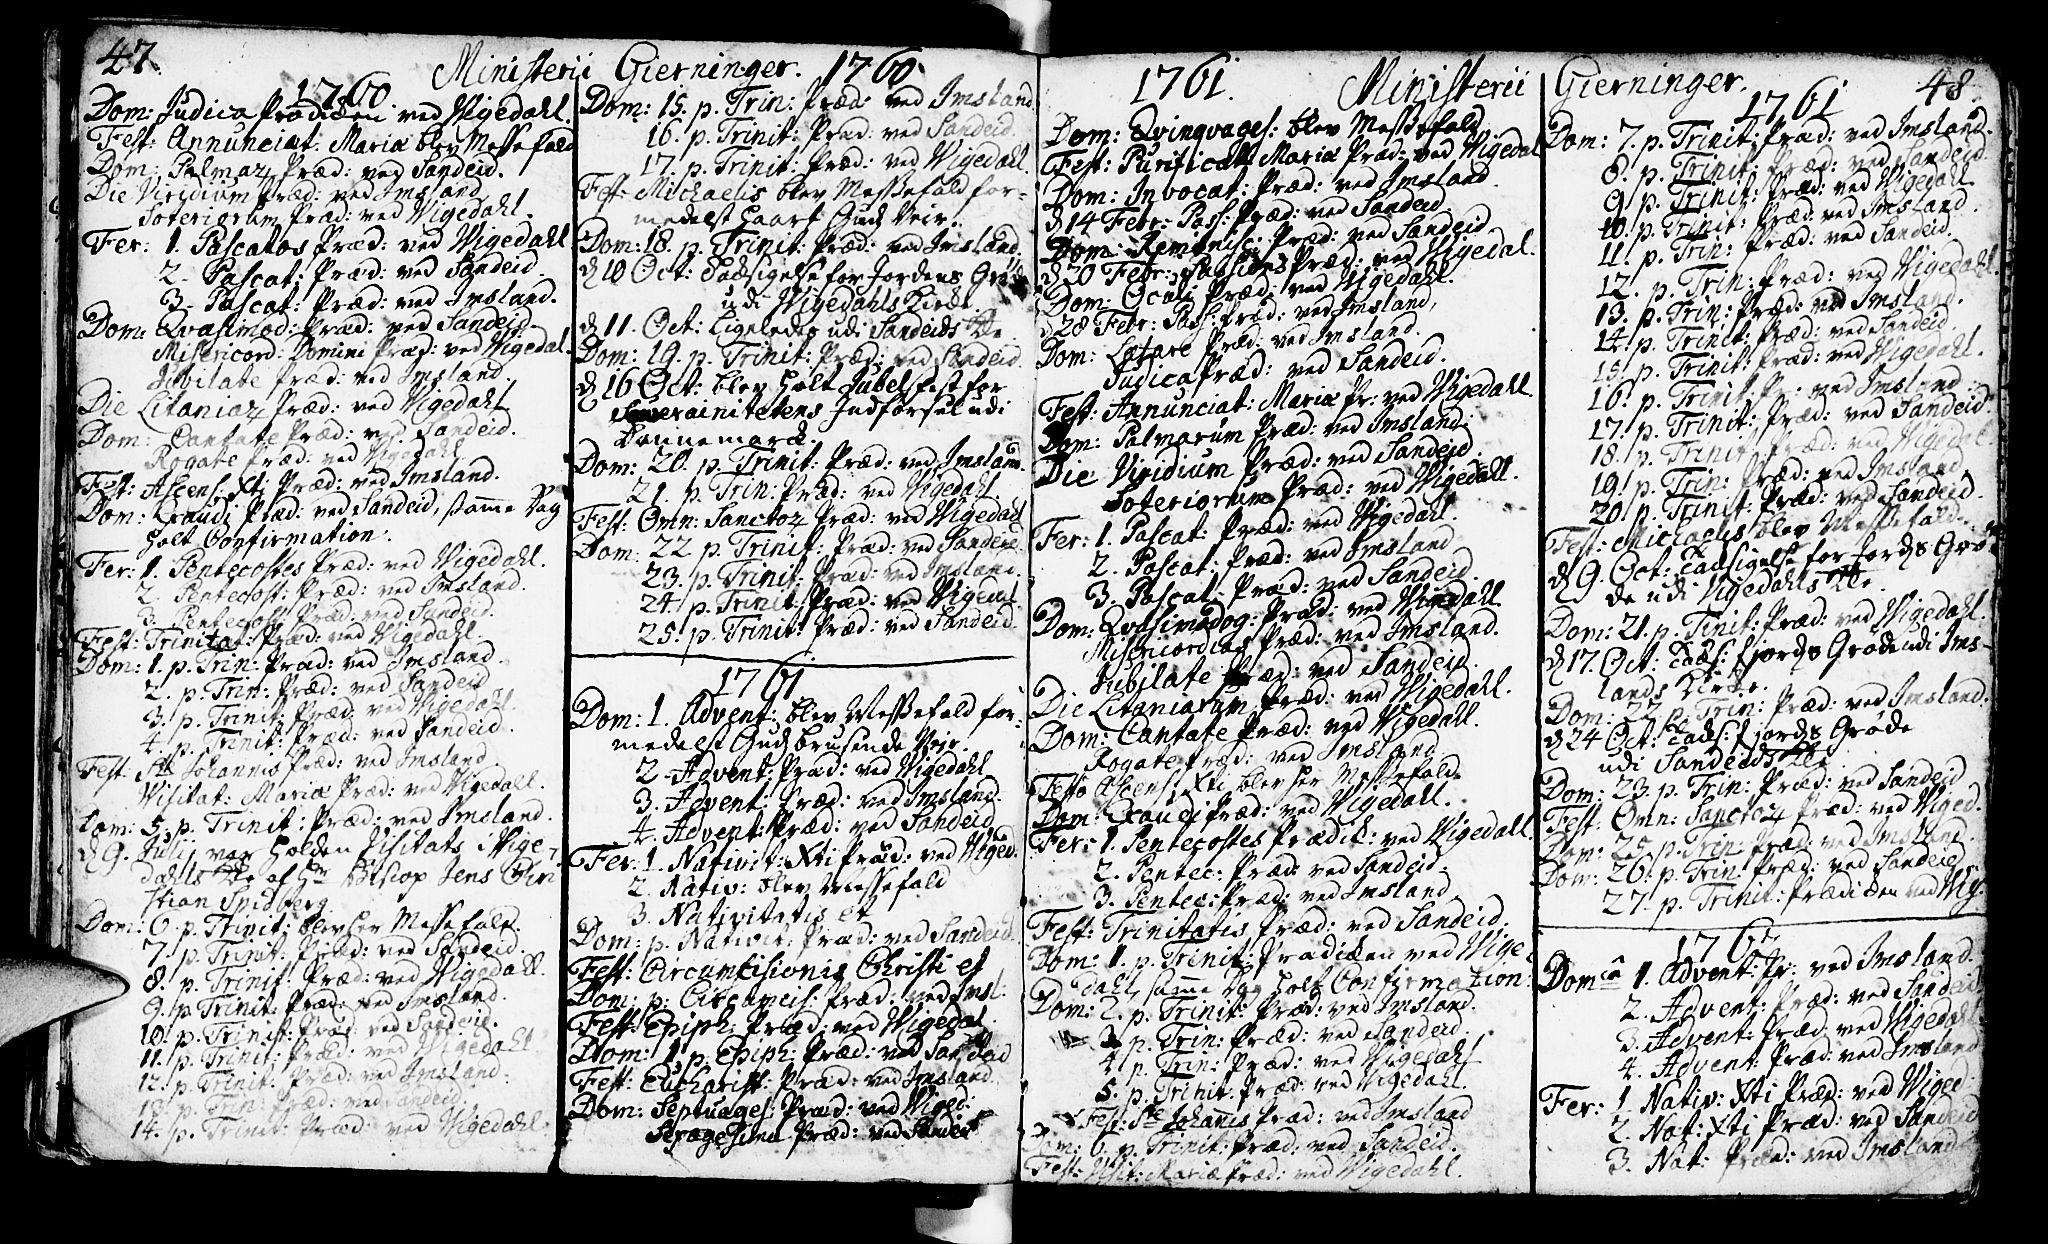 47. Ministerii Gierninger. 1760.
1760.
Dom: Judica Prædiken ved Vigedahl.
Fest: Annunciat: Mariæ blev Messefald
Dom: Palmar: Præd: ved Sandeid.
Die Viridium Præd: ved Imsland
Soteriorum Præd: ved Vigedahl.
Fer: 1. Pascatos Præd: ved Vigedahl
2. Pascat: Præd: ved Sandeid.
3. Pascat: Præd: ved Imsland.
Dom: Qvasimod: Præd: ved Sandeid.
Misericord: Domini Præd: ved Vigedal.
Jubilate Præd: ved Imsland.
Die Litaniar: Præd: ved Vigedahl
Dom: Cantate Præd: ved Sandeid.
Rogate Præd: ved Vigedahl
Fest: Ascens: Xti Præd: ved Imsland.
Dom: Exaudi Præd: ved Sandeid, samme Dag
holt Confirmation.
Fer: 1. Pentecostes Præd: ved Vigedahl.
2. Pentecost: Præd: ved Imsland.
3. Pentecost: Præd: ved Sandeid.
Fest: Trinitat: Præd: ved Vigedahl.
Dom: 1. p. Trin: Præd: ved Imsland.
2. p. Trin: Præd: ved Sandeid
3. p. Trinit: Præd: ved Vigedahl
4. p. Trinit: Præd: ved Sandeid.
Fest: Sti Johannis Præd: ved Imsland
Visitat: Mariæ Præd: ved Vigedall.
Dom: 5. p. Trinit: Præd: ved Imsland.
d 9. Julij var holden Visitats i Vige-
dahls Kke af Hr Biscop Jens Chri
stian Spidberg.
Dom: 6. p. Trinit: blev her Messefald.
7. p. Trinit: Præd: ved Sandeid.
8. p. Trinit: Præd: ved Vigedall.
9. p. Trinit: Præd: ved Imsland.
10. p. Trinit: Præd: ved Sandeid.
11. p. Trinit: Præd: ved Vigedahl
12. p. Trinit: Præd: ved Imsland.
13. p. Trin: Præd: ved Sandeid.
14. p. Trinit: Præd: ved Vigedahl.
Dom: 15. p. Trin: Præd: ved Imsland
16. p. Trinit: Præd: ved Sandeid.
17. p. Trinit: Præd: ved Vigedahl.
Fest: Michaelis blev Messefald for-
medelst haart Guds Veir.
Dom: 18. p. Trinit: Præd: ved Imsland
d 10 Oct: Tacksigelse for Jordens Grø
udi Vigedahls Kirke
d 11. Oct: Ligeledes udi Sandeids Kke
Dom: 19. p. Trinit: Præd: ved Sandeid
d 16 Oct: blev holt Jubelfest for
Souverainitetens Indførsel udi
Dannemarck.
Dom: 20. p. Trinit: Præd: ved Imsland.
21. p. Trin: Præd: ved Vigedahl.
Fest: Omn: Sanctor: Præd: ved Vigedahl
Dom: 22 p. Trinit: Præd: ved Sandeid
23. p. Trinit: Præd: ved Imsland.
24. p. Trinit: Præd: ved Vigedal.
25. p. Trinit: Præd: ved Sandeid.
1761
Dom: 1. Advent: blev Messefald for-
medelst Guds brusende Veir.
2. Advent: Præd: ved Vigedahl
3. Advent: Præd: ved Imsland.
4. Advent: Præd: ved Sandeid
Fer: 1. Nativit: Xti Præd: ved Viged.
2. Nativ: blev Messefald
3. Nativitatis et
Dom: p. Nativit: Præd: ved Sandeid.
Fest: Circumcisionis Christi et
Dom: p: Circumcis: Præd: ved Imsl.
Fest: Epiph: Præd: ved Vigedal.
Dom: 1 p. Epiph: Præd: ved Sandeid
Fest: Eucharist: Præd: ved Imsland
Dom: Septuages: Præd: ved Viged:
Sexagesima Præd: ved Sandeid
1761. Ministerii Gierninger. 48.
Dom: Qvinqvages: blev Messefald.
Fest: Purificat: Mariæ Præd: ved Vigedal
Dom: Invocat: Præd: ved Imsland.
d 14 Febr: Pass: Præd: ved Sandeid
Dom: Reminisc: Præd: ved Sandeid.
d 20 Febr: Passions Præd: ved Vigedal.
Dom: Oculi Præd: ved Vigedahl.
d 28 Febr: Pass: Præd: ved Imsland,
Dom: Lætare Præd: ved Imsland.
Judica Præd: ved Sandeid.
Fest: Annunciat: Mariæ Pr: ved Vigedahl
Dom: Palmarum Præd: ved Imsland.
Die Viridium Præd: ved Sandeid.
Soteriorum Præd: ved Vigedall.
Fer: 1. Pascat: Præd: ved Vigedahl.
2. Pascat: Præd: ved Imsland
3. Pascat: Præd: ved Sandeid.
Dom: Qvasimodog: Præd: ved Vigedahl
Misericordias Præd: ved Imsland.
Jubilate Præd: ved Sandeid.
Die Litaniarum Præd: ved Vigedahl.
Dom: Cantate Præd: ved Vigedall.
Rogate Præd: ved Imsland.
Festo Ascens: Xti blev her Messefald.
Dom: Exaudi Præd: ved Vigedall.
Fer: 1. Pentecostes Prædik: ved Vigedall.
2. Pentec: Præd: ved Sandeid.
3. Pentec: Præd: ved Imsland
Fest: Trinitatis Præd: ved Sandeid.
Dom: 1. p. Trinit: Prædiken ved Vige
dahl, samme Dag holt Confirmation.
Dom: 2. p. Trinit: Præd: ved Imsland.
3 p. Trin: Præd: ved Sandeid.
4 p. Trin: Præd: ved Vigedahl
5. p. Trinit: Præd: ved Vigedahl.
Fest: Ste Johannis Præd: ved Imsland
Dom: 6. p. Trinit: Præd: ved Sandeid.
Fest: Visit: Mariæ Præd: ved Vigedahl.
1761
Dom: 7. p. Trinit: Præd: ved Imsland.
8. p. Trinit: Præd: ved Sandeid
9 p. Trinit: Præd: ved Vigedahl
10. p. Trinit: Præd: ved Imsland.
11. p. Trin: Præd: ved Sandeid.
12. p. Trin: Præd: ved Vigedahl.
13. p. Trin: Præd: ved Imsland.
14. p. Trinit: Præd: ved Sandeid.
15. p. Trinit: Præd: ved Vigedall.
16. p. Trinit: Pr: ved Imsland
17. p. Trinit: Præd: ved Sandeid.
18. p. Trinit: Præd: ved Vigedal
19. p. Trin: Præd: ved Imsland
20. p. Trinit: Præd: ved Sandeid.
Fest: Michaelis blev Messefald.
d 9. Oct: Tacksigelse for Jords Grø
de udi Vigedahls Kke
Dom: 21. p. Tinit: Præd: ved Vigedahl.
d 17. Oct: Tacks: f Jords Grøde udi Ims-
lands Kirke.
Dom: 22 p. Trin: Præd: ved Imsland.
d 24 Oct: Tacks: f Jords Grøde
udi Sandeids Kke
Dom: 23. p. Trin: Præd: ved Sandeid
Fest: Omn: Sanctor: Præd: ved Viged.
Dom: 25. p. Trin: Præd: ved Imsland.
Dom: 26. p. Trin: Præd: ved Sandeid
27. p. Trinit: Prædiken ved Vig.
1762
Domca 1. Advent: Pr: ved Imsland.
2. Advent: Præd: ved Sandeid
3. Advent: Præd: ved Vigedahl
4. Advent: Præd: ved Imsland
Fer: 1 Nativ: Xti Præd: ved Viged.
2. Nat: Xti Præd: ved Sandeid
3. Nat: Præd: ved Imsland